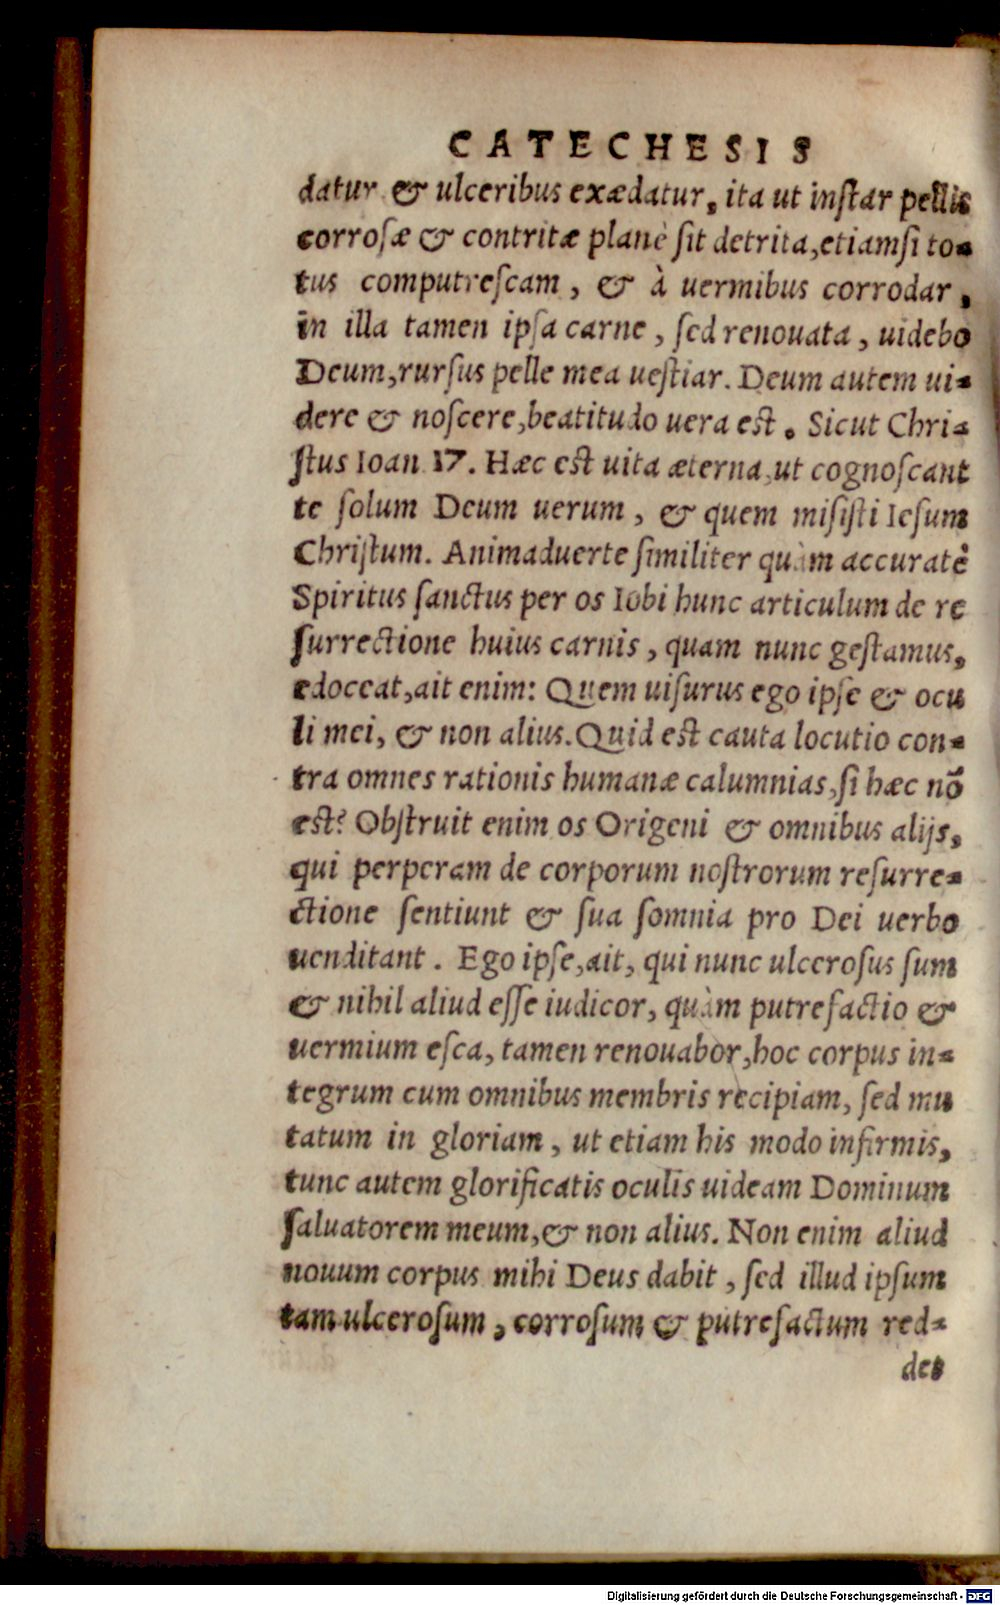 CATECHESIS
datur & ulceribus exædatur, ita ut inſtar pellis
corroſæ & contritæ planè ſit detrita,etiamſi to-
tus computreſcam, & à uermibus corrodar,
in illa tamen ipſa carne, ſed renouata, uidebo
Deum,rurſus pelle mea ueſtiar. Deum autem ui-
dere & noſcere,beatitudo uera est. Sicut Chri-
ſtus Ioan 17. Hæc est uita æterna,ut cognoſcant
te ſolum Deum uerum, & quem miſiſti Ieſum
Chriſtum. Animaduerte ſimiliter quàm accuratè
Spiritus ſanctus per os Iobi hunc articulum de re
ſurrectione huius carnis, quam nunc geſtamus,
edoceat,ait enim: Quem uiſurus ego ipſe & ocu
li mei, & non alius. Quid est cauta locutio con-
tra omnes rationis humanæ calumnias,ſi hæc nõ
est? Obſtruit enim os Origeni & omnibus alijs,
qui perperam de corporum noſtrorum reſurre-
ctione ſentiunt & ſua ſomnia pro Dei uerbo
uenditant. Ego ipſe,ait, qui nunc ulceroſus ſum
& nihil aliud eſſe iudicor, quàm putrefactio &
uermium eſca, tamen renouabor,hoc corpus in-
tegrum cum omnibus membris recipiam, ſed mu
tatum in gloriam, ut etiam his modo infirmis,
tunc autem glorificatis oculis uideam Dominum
ſaluatorem meum,& non alius. Non enim aliud
nouum corpus mihi Deus dabit, ſed illud ipſum
tam ulceroſum, corroſum & putrefactum red-
det
Digitalisierung gefördert durch die Deutsche Forschungsgemeinschaft - DFG